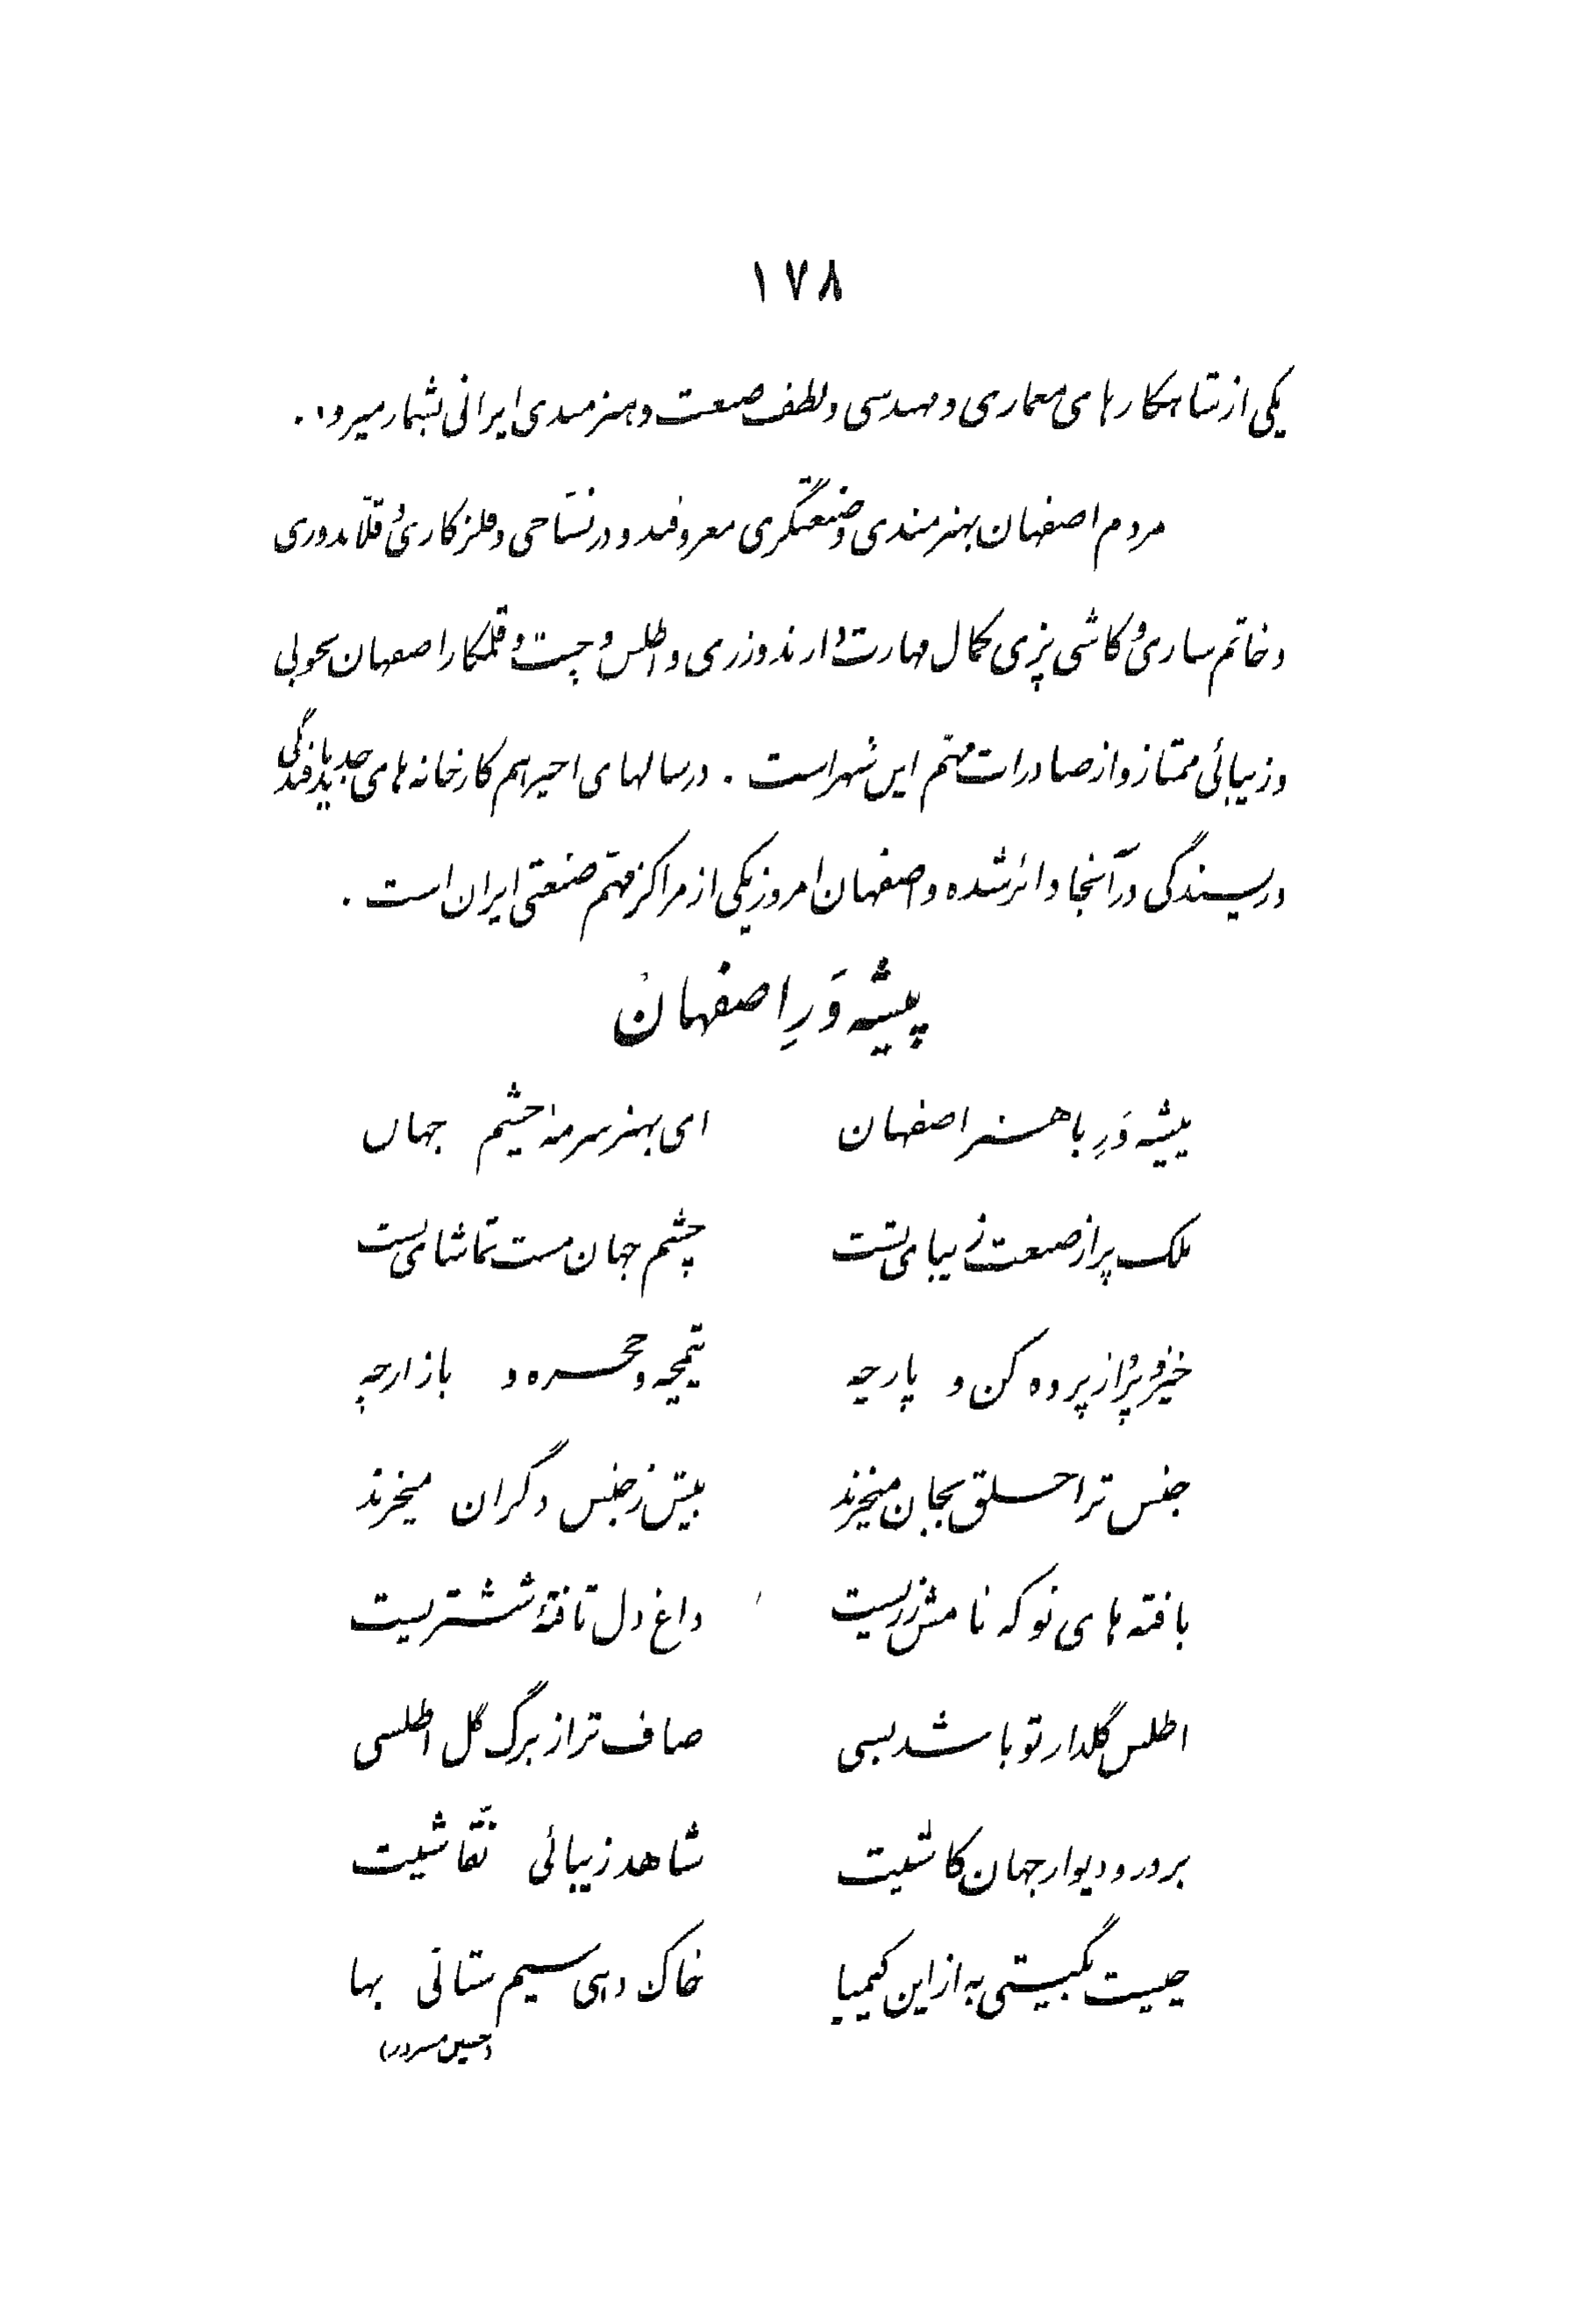 ۱۷۸
یکی از شاهکارهای معماری و مهندسی و لطف صنعت و هنرمندی ایرانی بشمار میرود.
مردم اصفهان بهنرمندی و صنعتگری معروفند و در نسّاجی و فلزکاری و قلّابدوزی
و خاتم سازی و کاشی پزی کمال مهارت دارند و زری و اطلس و چیت و قلمکار اصفهان بخوبی
و زیبائی ممتاز و از صادرات مهمّ این شهر است . در سالهای اخیر هم کارخانه های جدید بافندگی
و ریسندگی در آنجا دائر شده و اصفهان امروز یکی از مراکز مهمّ صنعتی ایران است .
پیشه وَرِ اصفهان
پیشه وَرِ با هنر اصفهان ای بهنر سرمهٔ چشم جهان
ملک پر از صنعت زیبای تست چشم جهان مست تماشای تست
خیز و پُر از پرده کن و پارچه تیمچه و حجره و بازارچه
جنس ترا خلق بجان میخرند بیش ز جنس دگران میخرند
بافته های نو که نامش زریست داغ دل تافتهٔ ششتریست
اطلس گلدار تو باشد بسی صاف تر از برگ گل اطلسی
بر در و دیوار جهان کاشیت شاهد زیبائی نقّاشیت
چیست بگیتی به از این کیمیا خاک دهی سیم ستانی بها
(حسین مسرور)